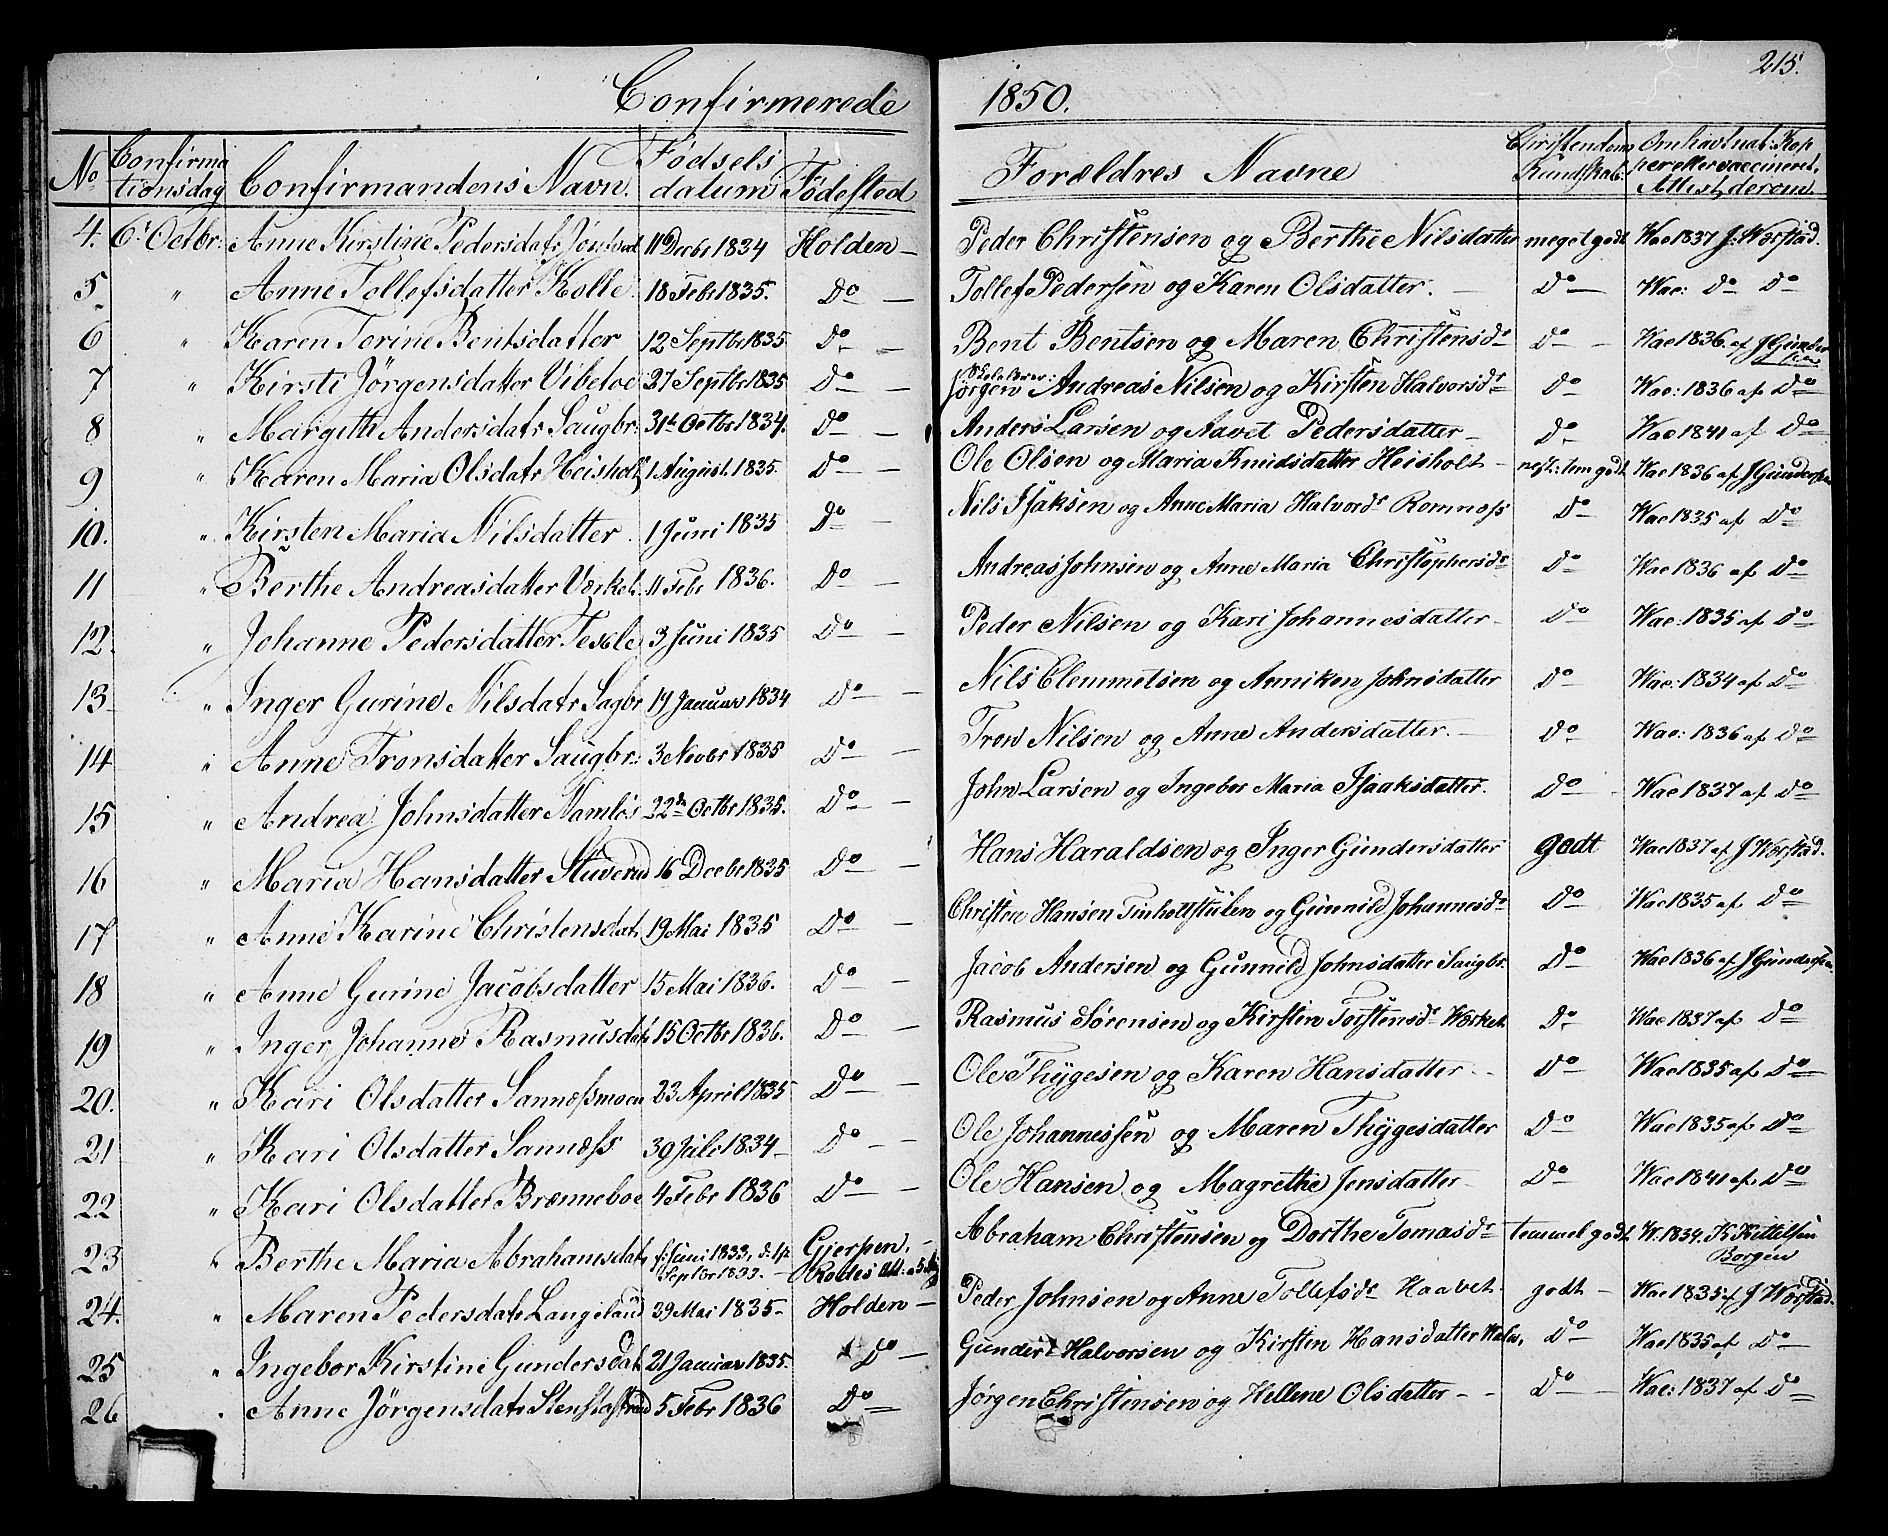 215.
Confirmerede 1850.
No Confirmationsdag Confirmandens Navn. Fødselsdatum Fødested Forældres Navne Christendoms Kundskab Om havt nat: Kopper eller vaccineret, Attest derom
4. 6t Octbr: Anne Kirstine Pedersdatr 11 Decbr 1834 Holden — Peder Christensen og Berthe Nilsdatter meget godt Vac 1837 J. Worstad.
5 " Anne Tollefsdatter Kolle. 18 Febr 1835. Do — Tollef Pedersen og Karen Olsdatter. — Do — Vac: Do Do
6 " Karen Torine Bentsdatter 12 Septbr 1835 Do — Bent Bentsen og Maren Christensdr Do — Vac 1836 af J Gundersen
7 " Kirsti Jørgensdatter Vibetoe 27 Septbr 1835 Do — Jørgen Andreas Nilsen og Kirsten Halvorsdr Do Vac: 1836 af Do
8 " Margith Andersdatr Saugbr: 31t Octbr 1834. Do — Anders Larsen og Aavet Pedersdatter — Do Vac 1841 af Do
9 " Karen Maria Olsdatr Heisholt 1 August. 1835. Do — Ole Olsen og Maria Knudsdatter Heisholt — nest: tem godt Vac 1836 af J Gundersen
10. " Kirsten Maria Nilsdatter. 1 Juni 1835 Do — Nils Isaksen og Anne Maria Halvordr Romness Do Vac 1835 af Do
11 " Berthe Andreasdatter Værket. 11 Febr 1836. Do — Andreas Johnsen og Anne Maria Christophersdr Do Vac 1836 af Do
12. " Johanne Pedersdatter 3 Juni 1835 Do — Peder Nilsen og Kari Johannesdatter — Do Vac: 1835 af Do
13 " Inger Gurine Nilsdatr Sagbr 19 Januar 1834 Do — Nils Clemmetsen og Anniken Johnsdatter Do Vac: 1834 af Do
14 " Anne Tronsdatter Saugbr: 3 Novbr 1835 Do — Tron Nilsen og Anne Andersdatter. — Do Vac: 1836 af Do
15 " Andrea Johnsdatter Namløs 22de Octbr 1835. Do — John Larsen og Ingebor Maria Isaaksdatter. Do Vac 1837 af Do
16 " Maria Hansdatter Stuverud 16 Decbr 1835 Do — Hans Haraldsen og Inger Gundersdatter godt Vac 1837 af J Worstad.
17 " Anne Karine Christensdatr 19 Mai 1835 Do — Christen Hansen Tinholtstulen og Gunnild Johannesdr Do Vac 1835 af Do
18 " Anne Gurine Jacobsdatter 15 Mai 1836. Do — Jacob Andersen og Gunnild Johnsdatter Saugbr. Do Vac 1836 af J Gundersen
19 " Inger Johanne Rasmusdatr 15 Octbr 1836. Do — Rasmus Sørensen og Kirsten Torstensdr Værket Do Vac 1837 af Do
20. " Kari Olsdatter Sannessmoen 23 April 1835 Do — Ole Thygesen og Karen Hansdatter — Do Vac 1835 af Do
21 " Kari Olsdatter Sanness 30 Juli 1834 — Do — Ole Johannessen og Maren Thygesdatter Do Vac 1835 af Do
22 " Kari Olsdatter Brænneboe 4 Febr 1836 Do — Ole Hansen og Magrethe Jensdatter — Do Vac 1841 af Do
23 " Berthe Maria Abrahamsdatr f: Juni 1833, d: 1st Septbr 1833. — Gjerpen. Abraham Christensen og Dorthe Tomasdr temmel godt V. 1834. K Kittelsen Borgen
24. " Maren Pedersdatr Langelaud 29 Mai 1835 — Holden — Peder Johnsen og Anne Tollefsdr Haavet. godt — Vac 1835 af J Worstad.
25 " Ingebor Kirstine Gundersdat. 21 Januar 1835. Do — Gunder Halvorsen og Kirsten Hansdatter Do Vac 1835 af Do
26 " Anne Jørgensdatr 5 Febr 1836 Do Jørgen Christensen og Hellene Olsdatter — Do — Vac: 1837 af Do